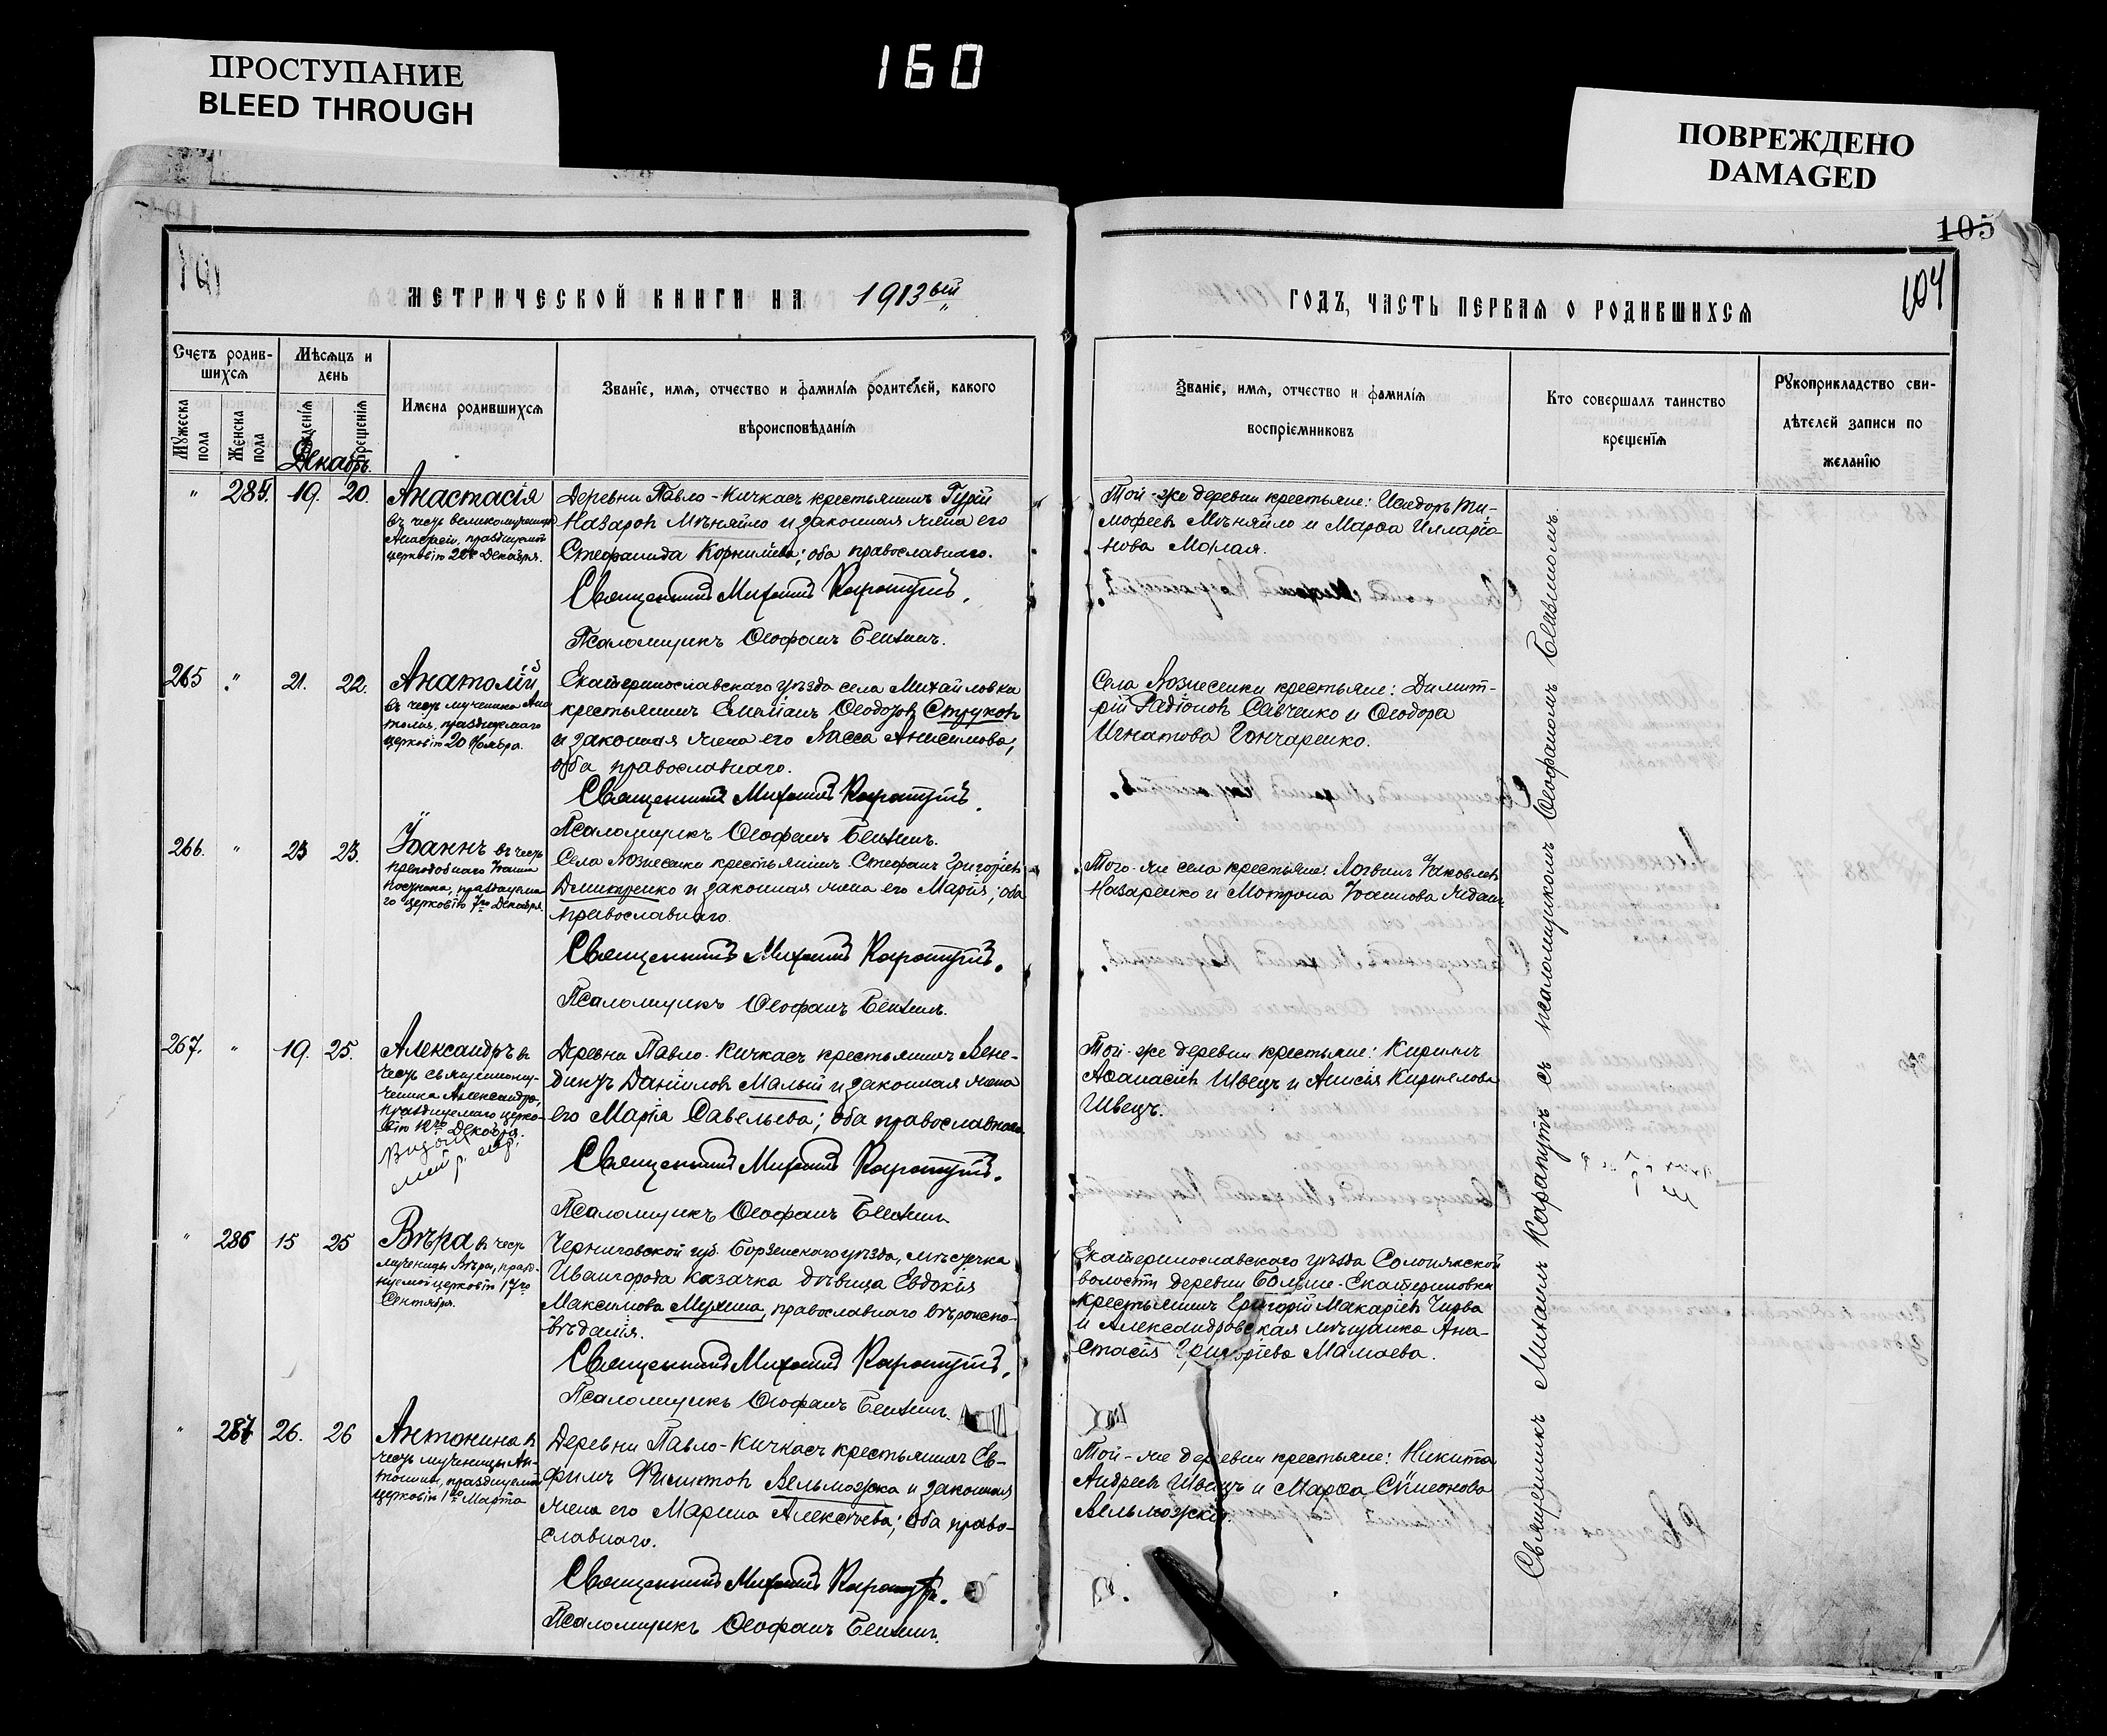 160
ПРОСТУПАНИЕ
BLEED THROUGH
ПОВРЕЖДЕНО
DAMAGED
105
104
МЕТРИЧЕСКОЙ КНИГИ НА 1913 вый
ГОДЪ, ЧАСТЬ ПЕРВАЯ О РОДИВШИХСЯ
Счетъ родив-
шихся
Мужеска пола
Женска пола
Мѣсяцъ и
день
рожденія
крещенія
Имена родившихся
Званіе, имя, отчество и фамилія родителей, какого
вѣроисповѣданія
Званіе, имя, отчество и фамилія
воспріемниковъ
Кто совершалъ таинство
крещенія
Рукоприкладство сви-
дѣтелей записи по
желанію
Декабрь.
" 285. 19. 20.
Анастасія
въ честь великомученицы
Анастасіи, празднуемой
церковію 22 Декабря.
Деревни Павло-Кичкасъ крестьянинъ Гурій
Назаровъ Мѣняйло и законная жена его
Стефанида Корнилiева; оба православнаго.
Священникъ Михаилъ Карапутъ.
Псаломщикъ Ѳеофанъ Бензинъ.
Той-же деревни крестьяне: Исидоръ Ти-
мофеевъ Мѣняйло и Марѳа Илларіо-
нова Малая.
265 " 21. 22.
Анатолій
въ честь мученика Ана
толія, празднуемаго
церковію 20 Ноября.
Екатеринославскаго уѣзда села Михайловки
крестьянинъ Емеліанъ Ѳеодоровъ Струковъ
и законная жена его Васса Анисимова,
оба православнаго.
Священникъ Михаилъ Карапутъ.
Псаломщикъ Ѳеофанъ Бензинъ.
Села Вознесенки крестьяне: Димит-
рій Радіоновъ Савченко и Ѳеодора
Игнатова Гончаренко.
266. " 23 23.
Іоаннъ въ честь
преподобнаго Іоанна
Постника, празднуема
го церковію 7го Декабря.
Села Вознесенки крестьянинъ Стефанъ Григоріевъ
Дмитренко и законная жена его Марія; оба
православнаго.
Священникъ Михаилъ Карапутъ.
Псаломщикъ Ѳеофанъ Бензинъ.
Того-же села крестьяне: Логвинъ Іаковлевъ
Назаренко и Мотрона Іоаннова Ждан
267. " 19. 25.
Александръ въ
честь священному-
ченика Александра,
празднуемаго церко-
вію 12го Декабря.
Деревни Павло-Кичкасъ крестьянинъ Вене-
диктъ Даніиловъ Малый и законная жена
его Марія Савельева; оба православнаго
Священникъ Михаилъ Карапутъ.
Псаломщикъ Ѳеофанъ Бензинъ
Той-же деревни крестьяне: Кириллъ
Аѳанасіевъ Швецъ и Анисія Кириллова
Швецъ.
" 286 15 25
Вѣра въ честь
мученицы Вѣры, празд-
нуемой церковію 17го
Сентября.
Черниговской губ. Борзенскаго уѣзда, мѣстечка
Ивангорода казачка дѣвица Евдокія
Максимова Мухина, православнаго вѣроиспо-
вѣданія.
Священникъ Михаилъ Карапутъ.
Псаломщикъ Ѳеофанъ Бензинъ.
Екатеринославскаго уѣзда Солонянской
волости деревни Больше-Екатериновки
крестьянинъ Григорій Макаріевъ Чирва
и Александровская мѣщанка Ана-
стасія Григоріева Мамаева.
" 287 26. 26
Антонина въ
честь мученицы Ан-
тонины, празднуемой
церковію 1го Марта
Деревни Павло-Кичкасъ крестьянинъ Ев-
фимъ Филиповъ Вельможка и законная
жена его Марина Алексѣева; оба право-
славнаго.
Священникъ Михаилъ Карапутъ.
Псаломщикъ Ѳеофанъ Бензинъ.
Той-же деревни крестьяне: Никита
Андреевъ Швецъ и Марѳа Симеонова
Вельможка.
Священникъ Михаилъ Карапутъ съ псаломщикомъ Ѳеофаномъ Бензиномъ.